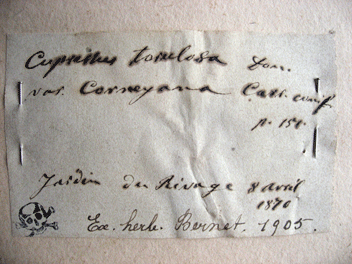 Cupressus torulosa Don.
var. Corneyana Carr. conif.
p. 151.
Jardin du Rivage 8 avril
1870
Ex. herb. Bornet. 1905.